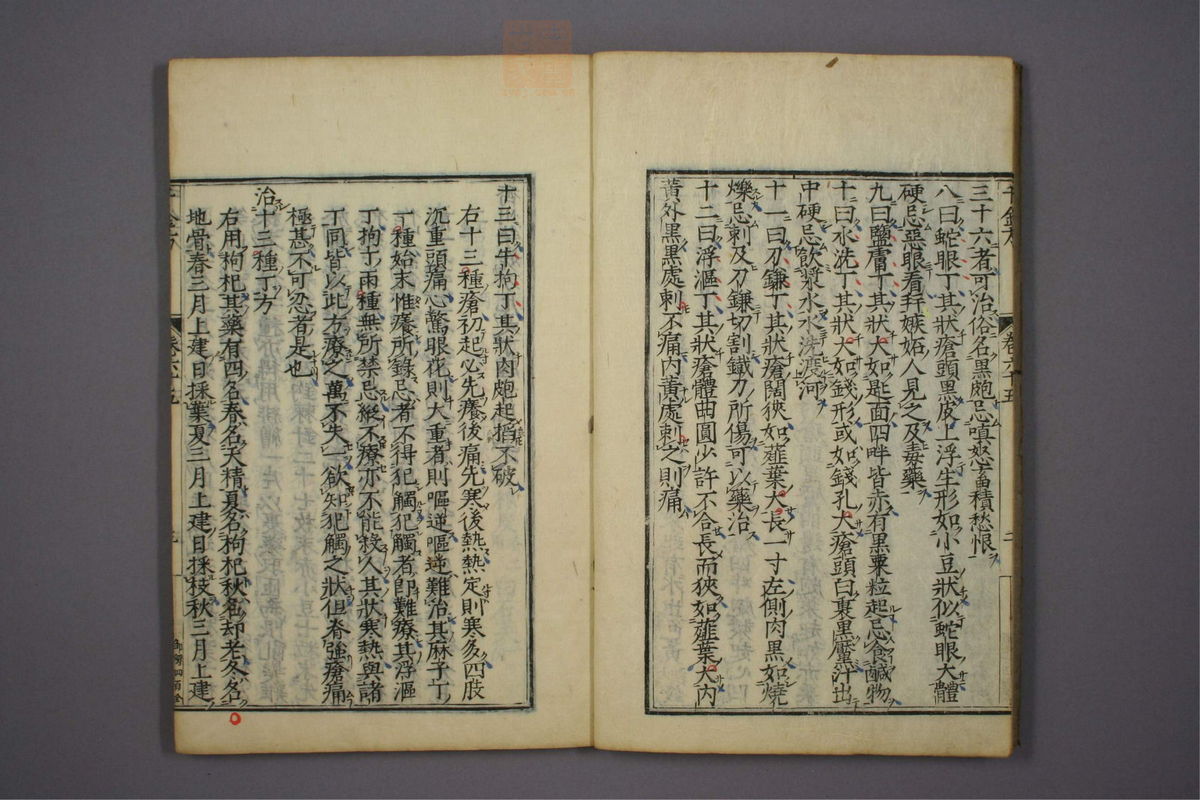 三十六者可治俗名黑皰忌嗔怒畜積愁恨
八曰蛇眼丁其狀瘡頭黑皮上浮生形如小豆狀似蛇眼大體
硬忌惡眼看幷嫉妬人見之及毒藥
九曰鹽膚丁其狀大如匙面四畔皆赤有黑粟粒起忌食鹹物
十曰水洗丁其狀大如錢形或如錢孔大瘡頭白裏黑黶汁出
中硬忌飲漿水水洗渡河
十一曰刀鎌丁其狀瘡闊狹如薤葉大長一寸左側肉黑如燒
爍忌刺及刀鎌切割鐵刀所傷可以藥治
十二曰浮漚丁其狀瘡體曲圓少許不合長而狹如薤葉大內
黃外黑黑處刺不痛內黃處刺之則痛
十三曰牛拘丁其狀肉皰起掐不破
右十三種瘡初起必先癢後痛先寒後熱熱定則寒多四肢
沉重頭痛心驚眼花則大重者則嘔逆嘔逆難治其麻子丁
一種始末惟癢所錄忌者不得犯觸犯觸者即難療其浮漚
丁拘丁兩種無所禁忌縱不療亦不能殺人其狀寒熱與諸
丁同皆以此方療之萬不失一欲知犯觸之狀但脊強瘡痛
極甚不可忍者是也
治十三種丁方
右用枸杞其藥有四名春名天精夏名枸杞秋名却老冬名
地骨春三月上建日採葉夏三月上建日採枝秋三月上建
千金方
卷六十五
三